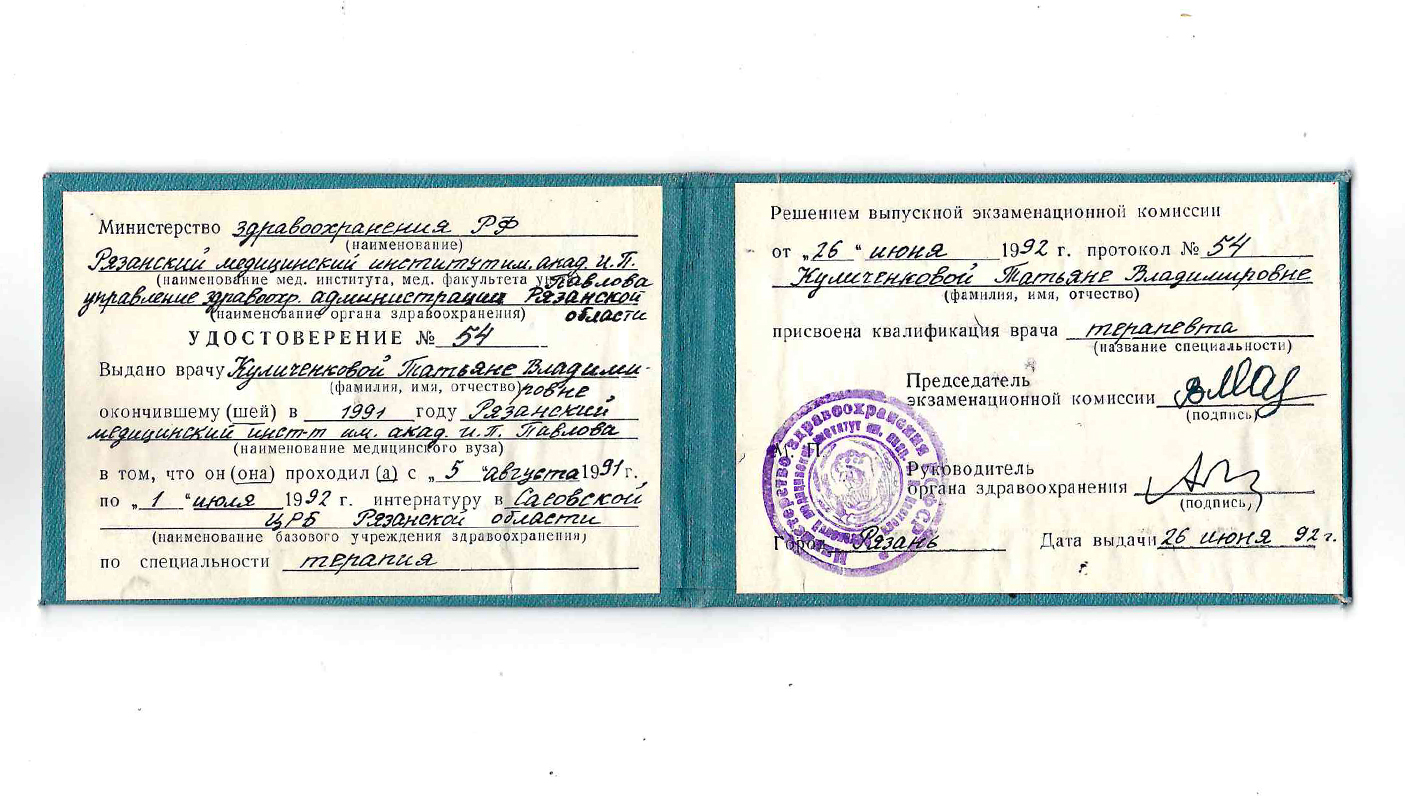 Министерство здравоохранения РФ
(наименование)
Рязанский медицинский институт им. акад. И.П.
(наименование мед. института, мед. факультета Павлова
управление здравоохр. администрации Рязанской
(наименование органа здравоохранения) области
УДОСТОВЕРЕНИЕ № 54
Выдано врачу Куличенковой Татьяне Владими-
(фамилия, имя, отчество) ровне
окончившему (шей) в 1991 году Рязанский
медицинский инст-т им. акад. И.П. Павлова
(наименование медицинского вуза)
в том, что он (она) проходил (а) с „5 “ августа 1991 г.
по „1 “ июля 1992 г. интернатуру в Сасовской
ЦРБ Рязанской области
(наименование базового учреждения здравоохранения)
по специальности терапия
Решением выпускной экзаменационной комиссии
от „26 “ июня 1992 г. протокол № 54
Куличенковой Татьяне Владимировне
(фамилия, имя, отчество)
присвоена квалификация врача терапевта
(название специальности)
Председатель
экзаменационной комиссии
(подпись)
М. П.
Руководитель
органа здравоохранения
(подпись)
Город Рязань Дата выдачи 26 июня 92 г.
Министерство здравоохранения РСФСР